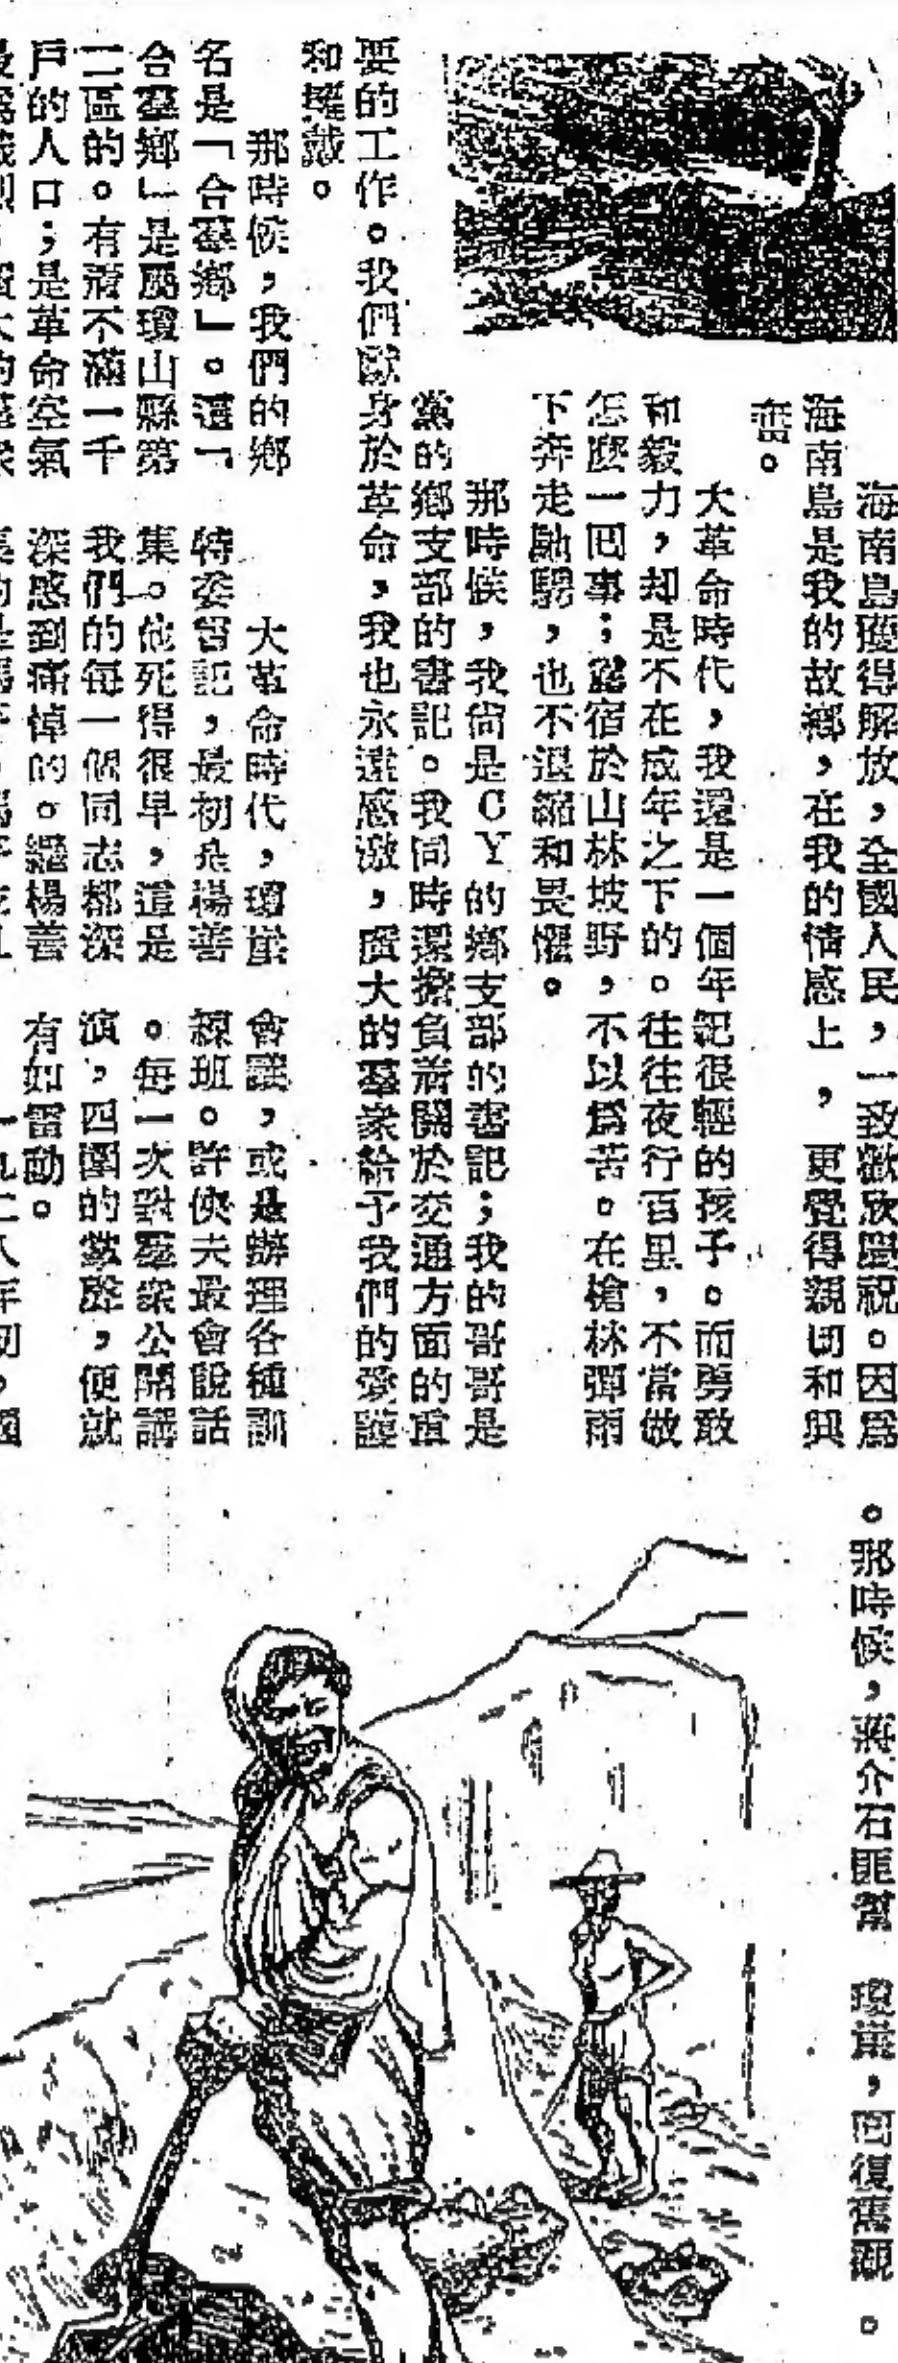 海南島獲得解放，全國人民，一致歡欣慶祝。因爲
海南島是我的故鄉，在我的情感上，更覺得親切和興
奮。
大革命時代，我還是一個年紀很輕的孩子。而勇敢
和毅力，却是不在成年之下的。往往夜行百里，不當做
怎麼一回事；露宿於山林坡野，不以爲苦。在槍林彈雨
下奔走馳騁，也不退縮和畏懼。
那時候，我尙是CY的鄉支部的書記；我的哥哥是
黨的鄉支部的書記。我同時還擔負着關於交通方面的重
要的工作。我們獻身於革命，我也永遠感激，廣大的羣衆給予我們的愛護
和擁戴。
那時候，我們的鄉
名是「合羣鄉」。這「
合羣鄉」是屬瓊山縣第
二區的。有着不滿一千
戶的人口；是革命空氣
大革命時代，瓊崖
特委書記，最初是楊善
集。他死得很早，這是
我們的每一個同志都深
深感到痛悼的。繼楊善
會議，或是辦理各種訓
練班。許俠夫最會說話
。每一次對羣衆公開講
演，四圍的聲，便就
有如雷動。
一九二八年初，國
。那時候，蔣介石匪幫 瓊崖，回復舊觀。